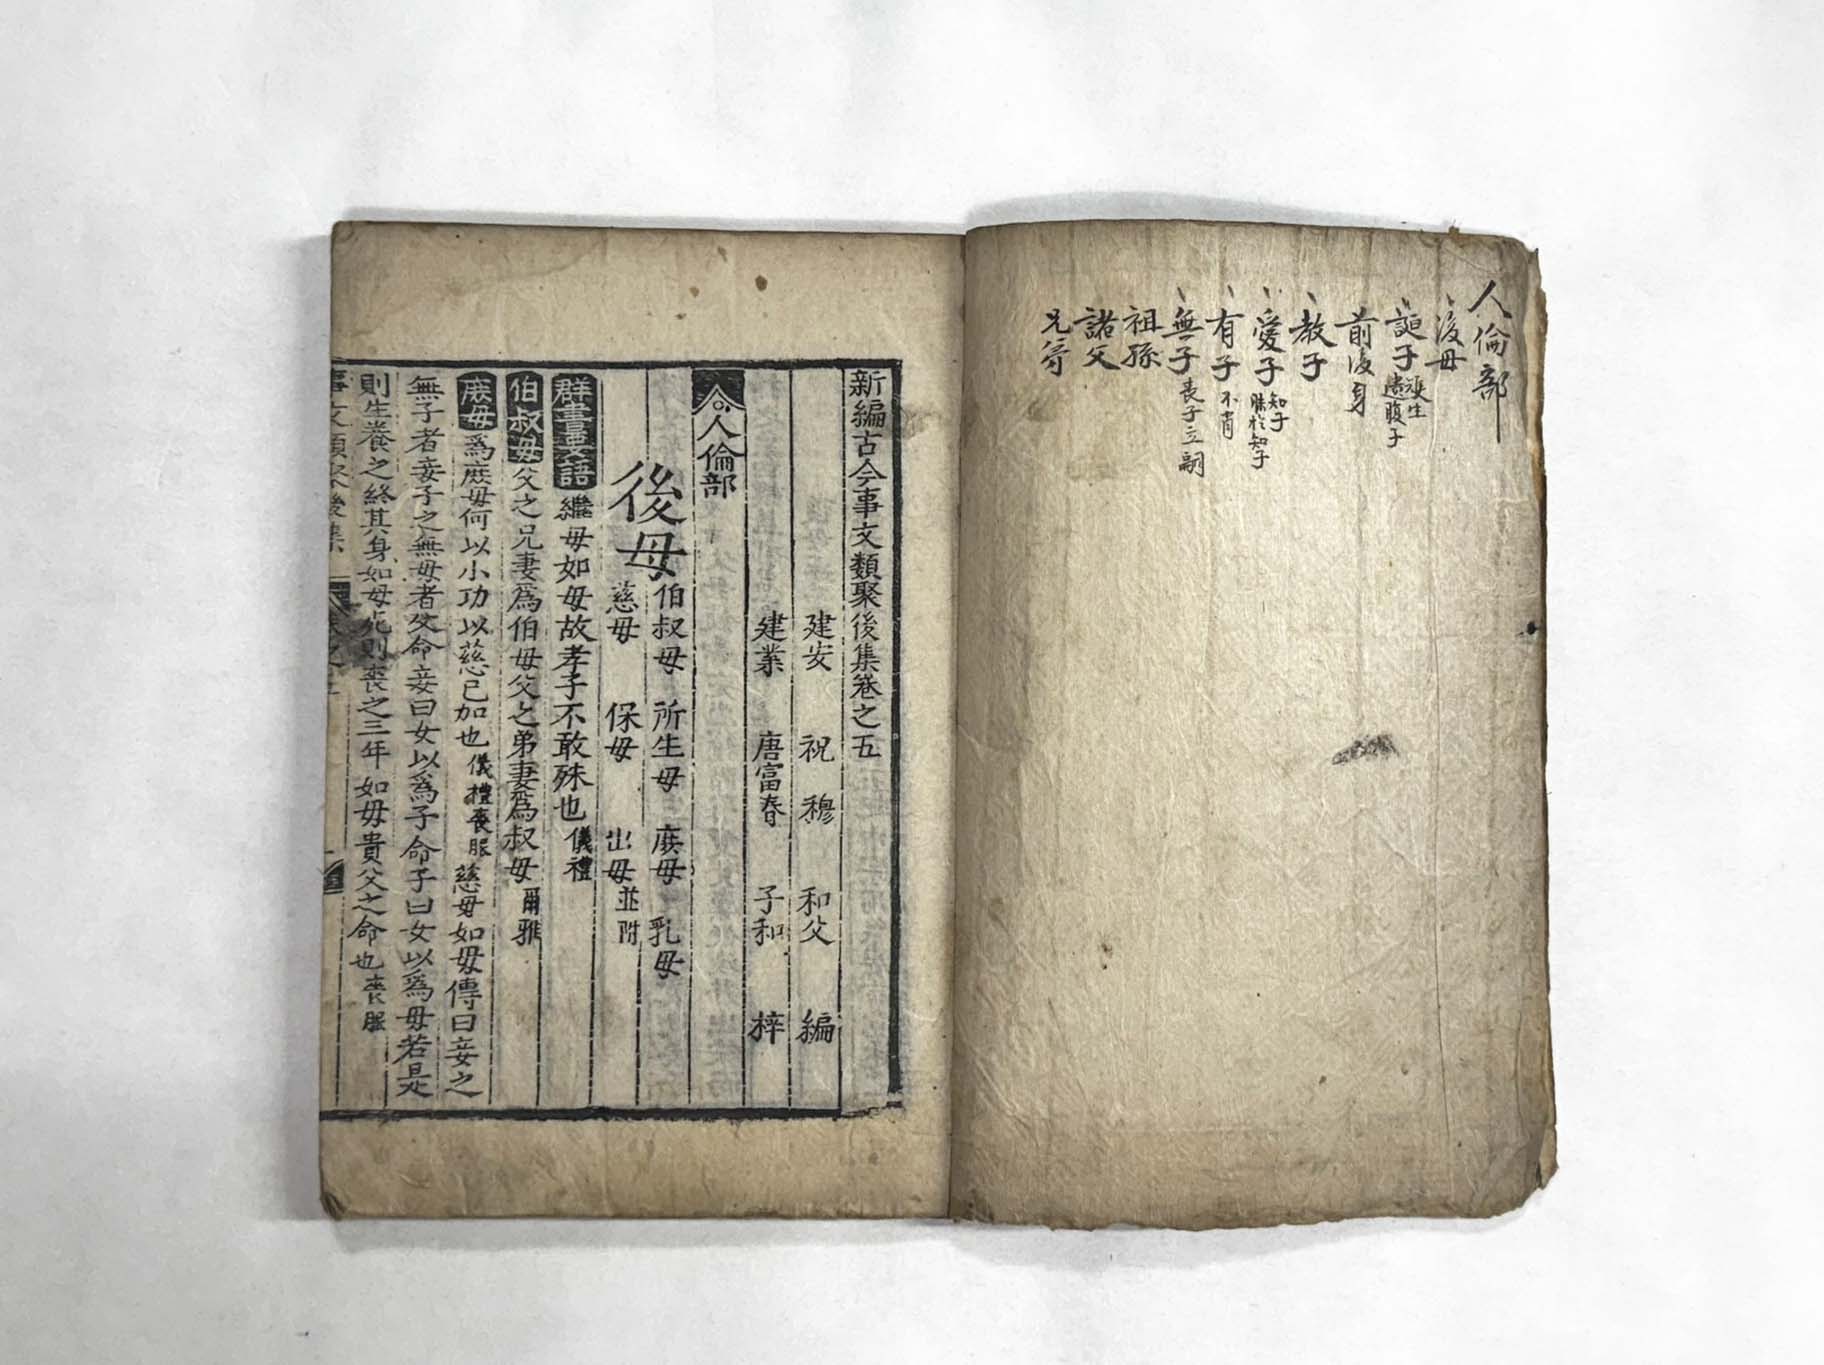 人倫部
後母
誕子 頌生 遺腹子
前後身
教子
愛子 知子 昧於知子
有子 不肖
無子 喪子立嗣
祖孫
諸父
兄弟
新編古今事文類聚後集卷之五
建安 祝 穆 和父 編
建業 唐富春 子和 梓
人倫部
後母 伯叔母 所生母 庶母 乳母
慈母 保母 出母並附
群書要語 繼母如母故孝子不敢殊也 儀禮
伯叔母 父之兄妻爲伯母父之弟妻爲叔母 爾雅
庶母 爲庶母何以小功以慈己加也 儀禮喪服 慈母如母傳曰妾之
無子者妾子之無母者父命妾曰女以爲子命子曰女以爲母若是
則生養之終其身如母死則喪之三年如母貴父之命也 喪服
事文類聚後集